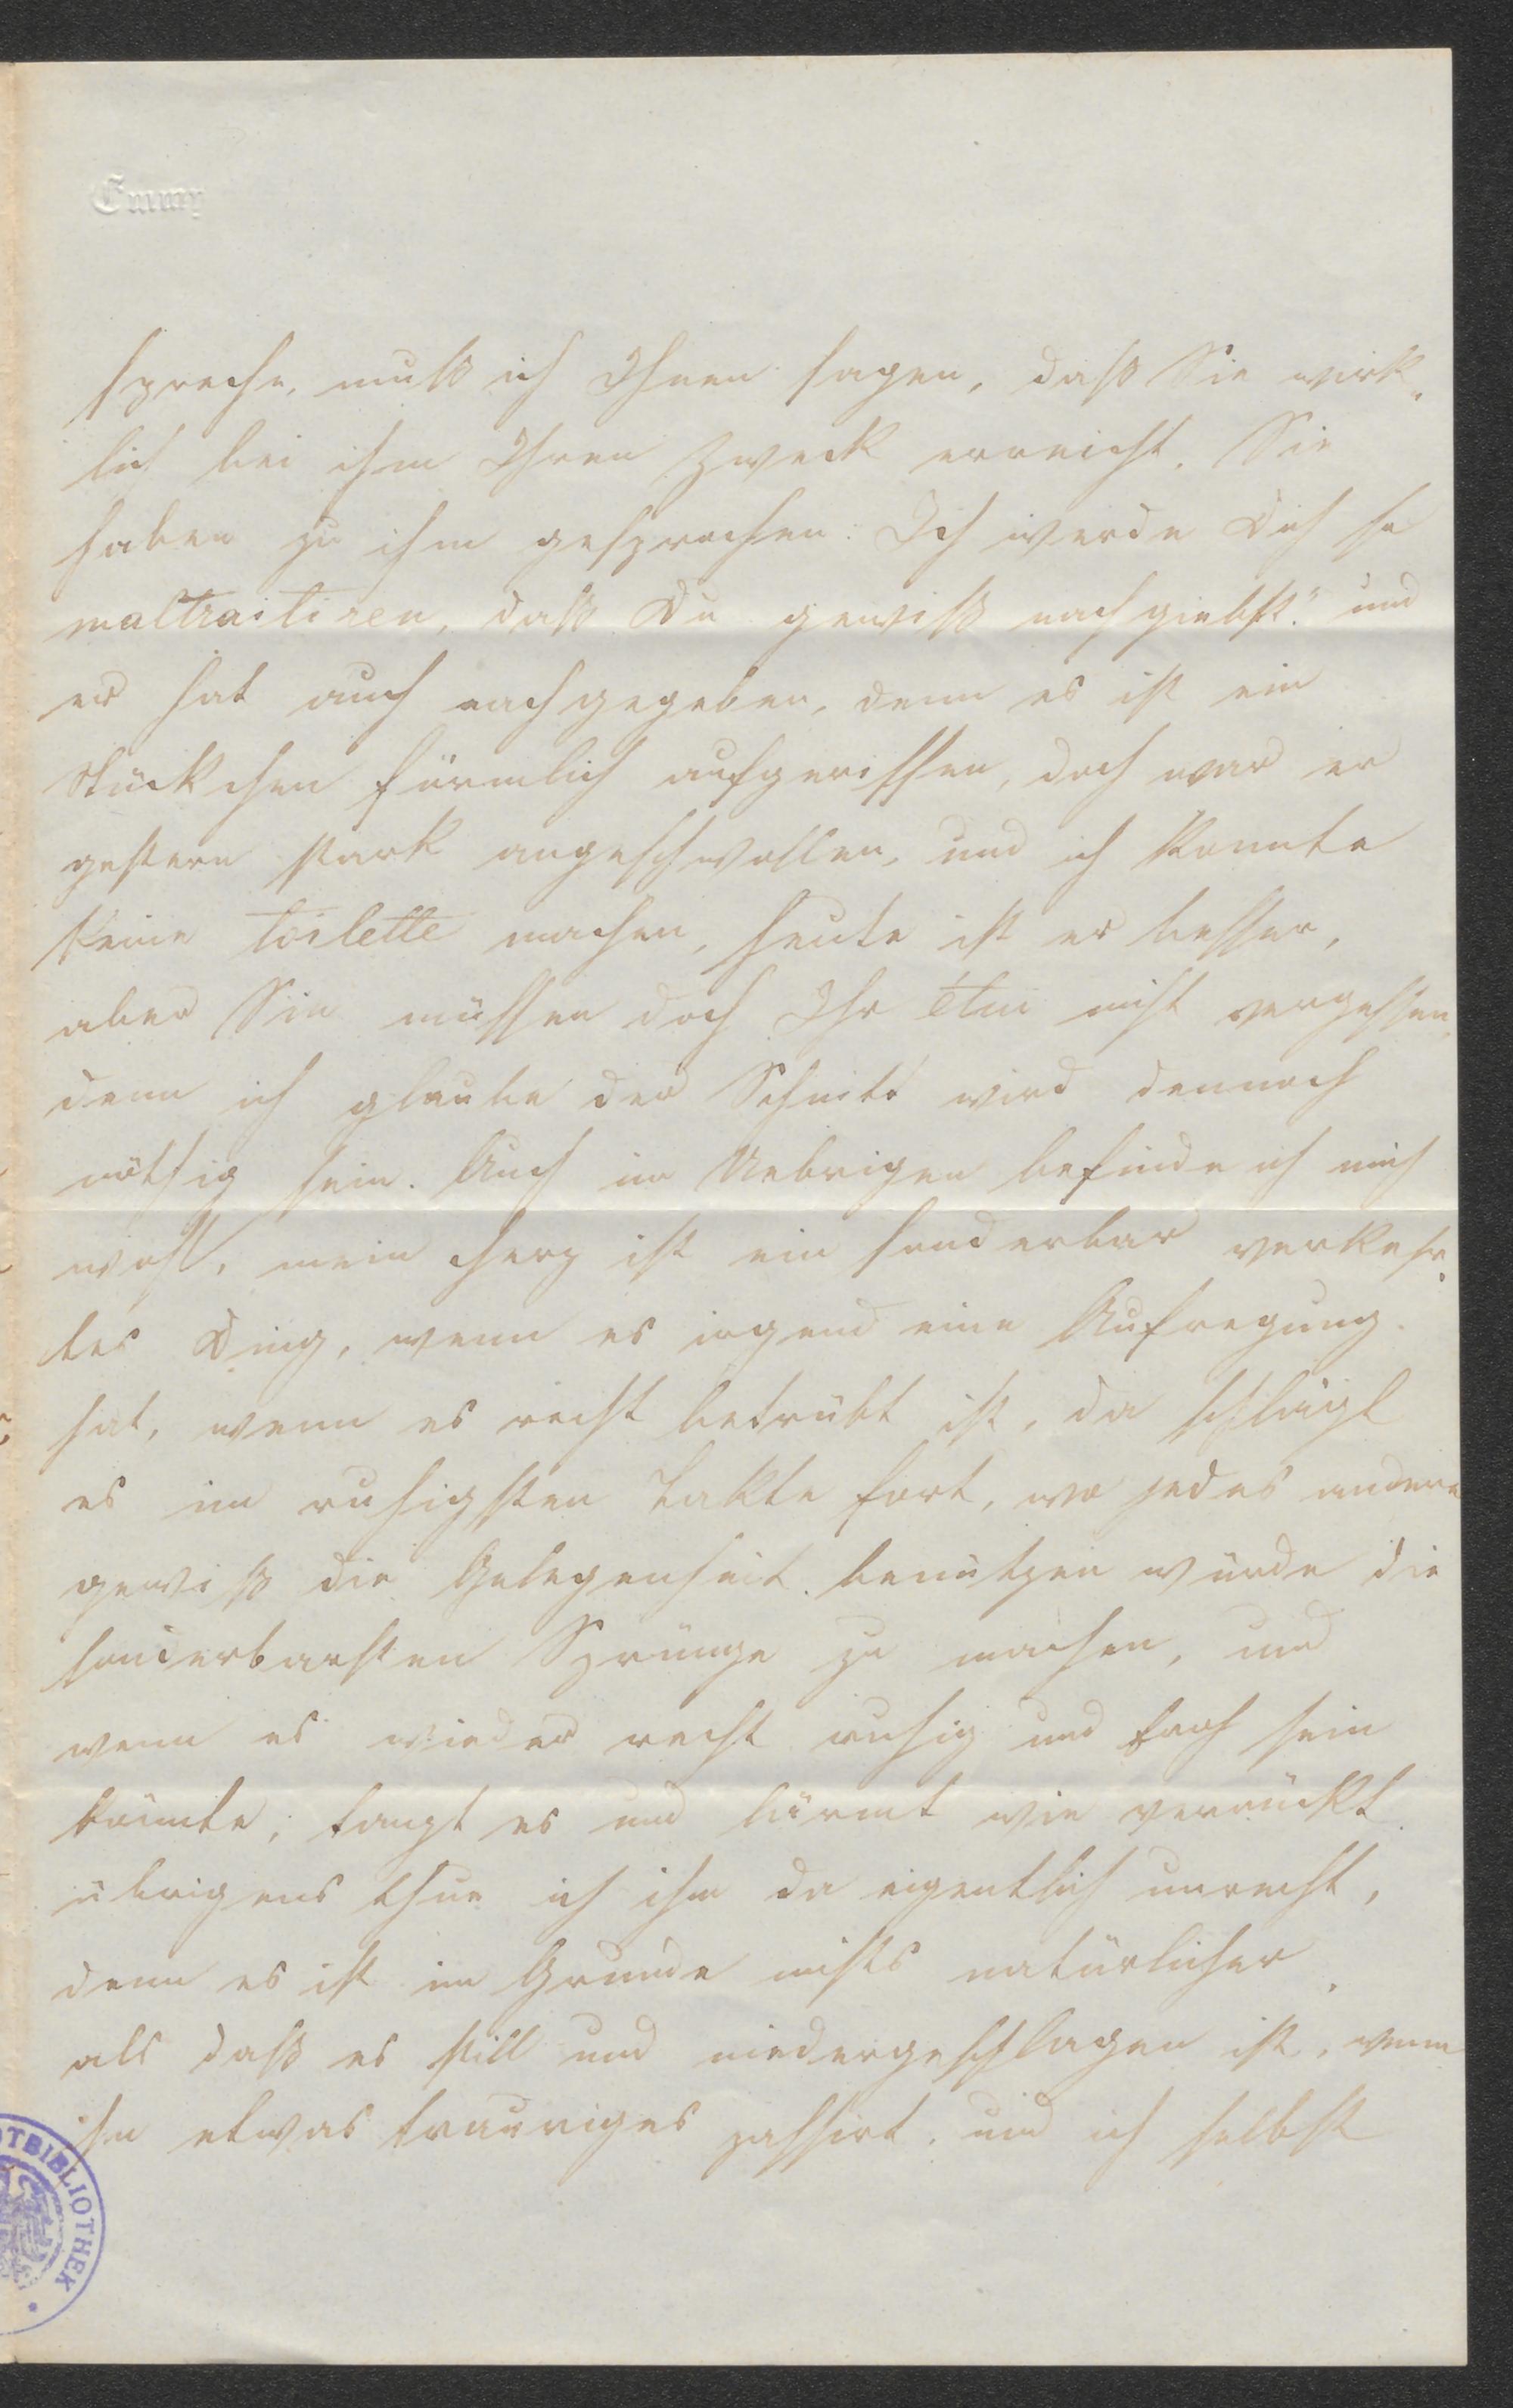 Emmy
spreche, muß ich Ihnen sagen, daß Sie wirk-
lich bei ihm Ihren Zweck erreicht. Sie
haben zu ihm gesprochen: Ich werde Dich so
maltraitiren, daß Du gewiß nachgiebst." und
er hat auch nachgegeben, denn es ist ein
Stückchen förmlich aufgerissen, doch war er
gestern stark angeschwollen, und ich konnte
keine toilette machen, heute ist er besser,
aber Sie müssen doch Ihr étui nicht vergessen,
denn ich glaube der Schnitt wird dennoch
nöthig sein. Auch im Uebrigen befinde ich mich
wohl, mein Herz ist ein sonderbar verkehr-
tes Ding, wenn es irgend eine Aufregung
hat, wenn es recht betrübt ist, da schlägt
es im ruhigsten Takte fort, wo jedes andere
gewiß die Gelegenheit benützen würde die
sonderbarsten Sprünge zu machen, und
wenn es wieder recht ruhig und froh sein
könnte, tanzt es und lärmt wie verrückt.
übrigens thue ich ihm da eigentlich unrecht,
denn es ist im Grunde nichts natürlicher,
als daß es still und niedergeschlagen ist, wenn
ihm etwas trauriges passirt, und ich selbst
OTBIBLIOTHEK